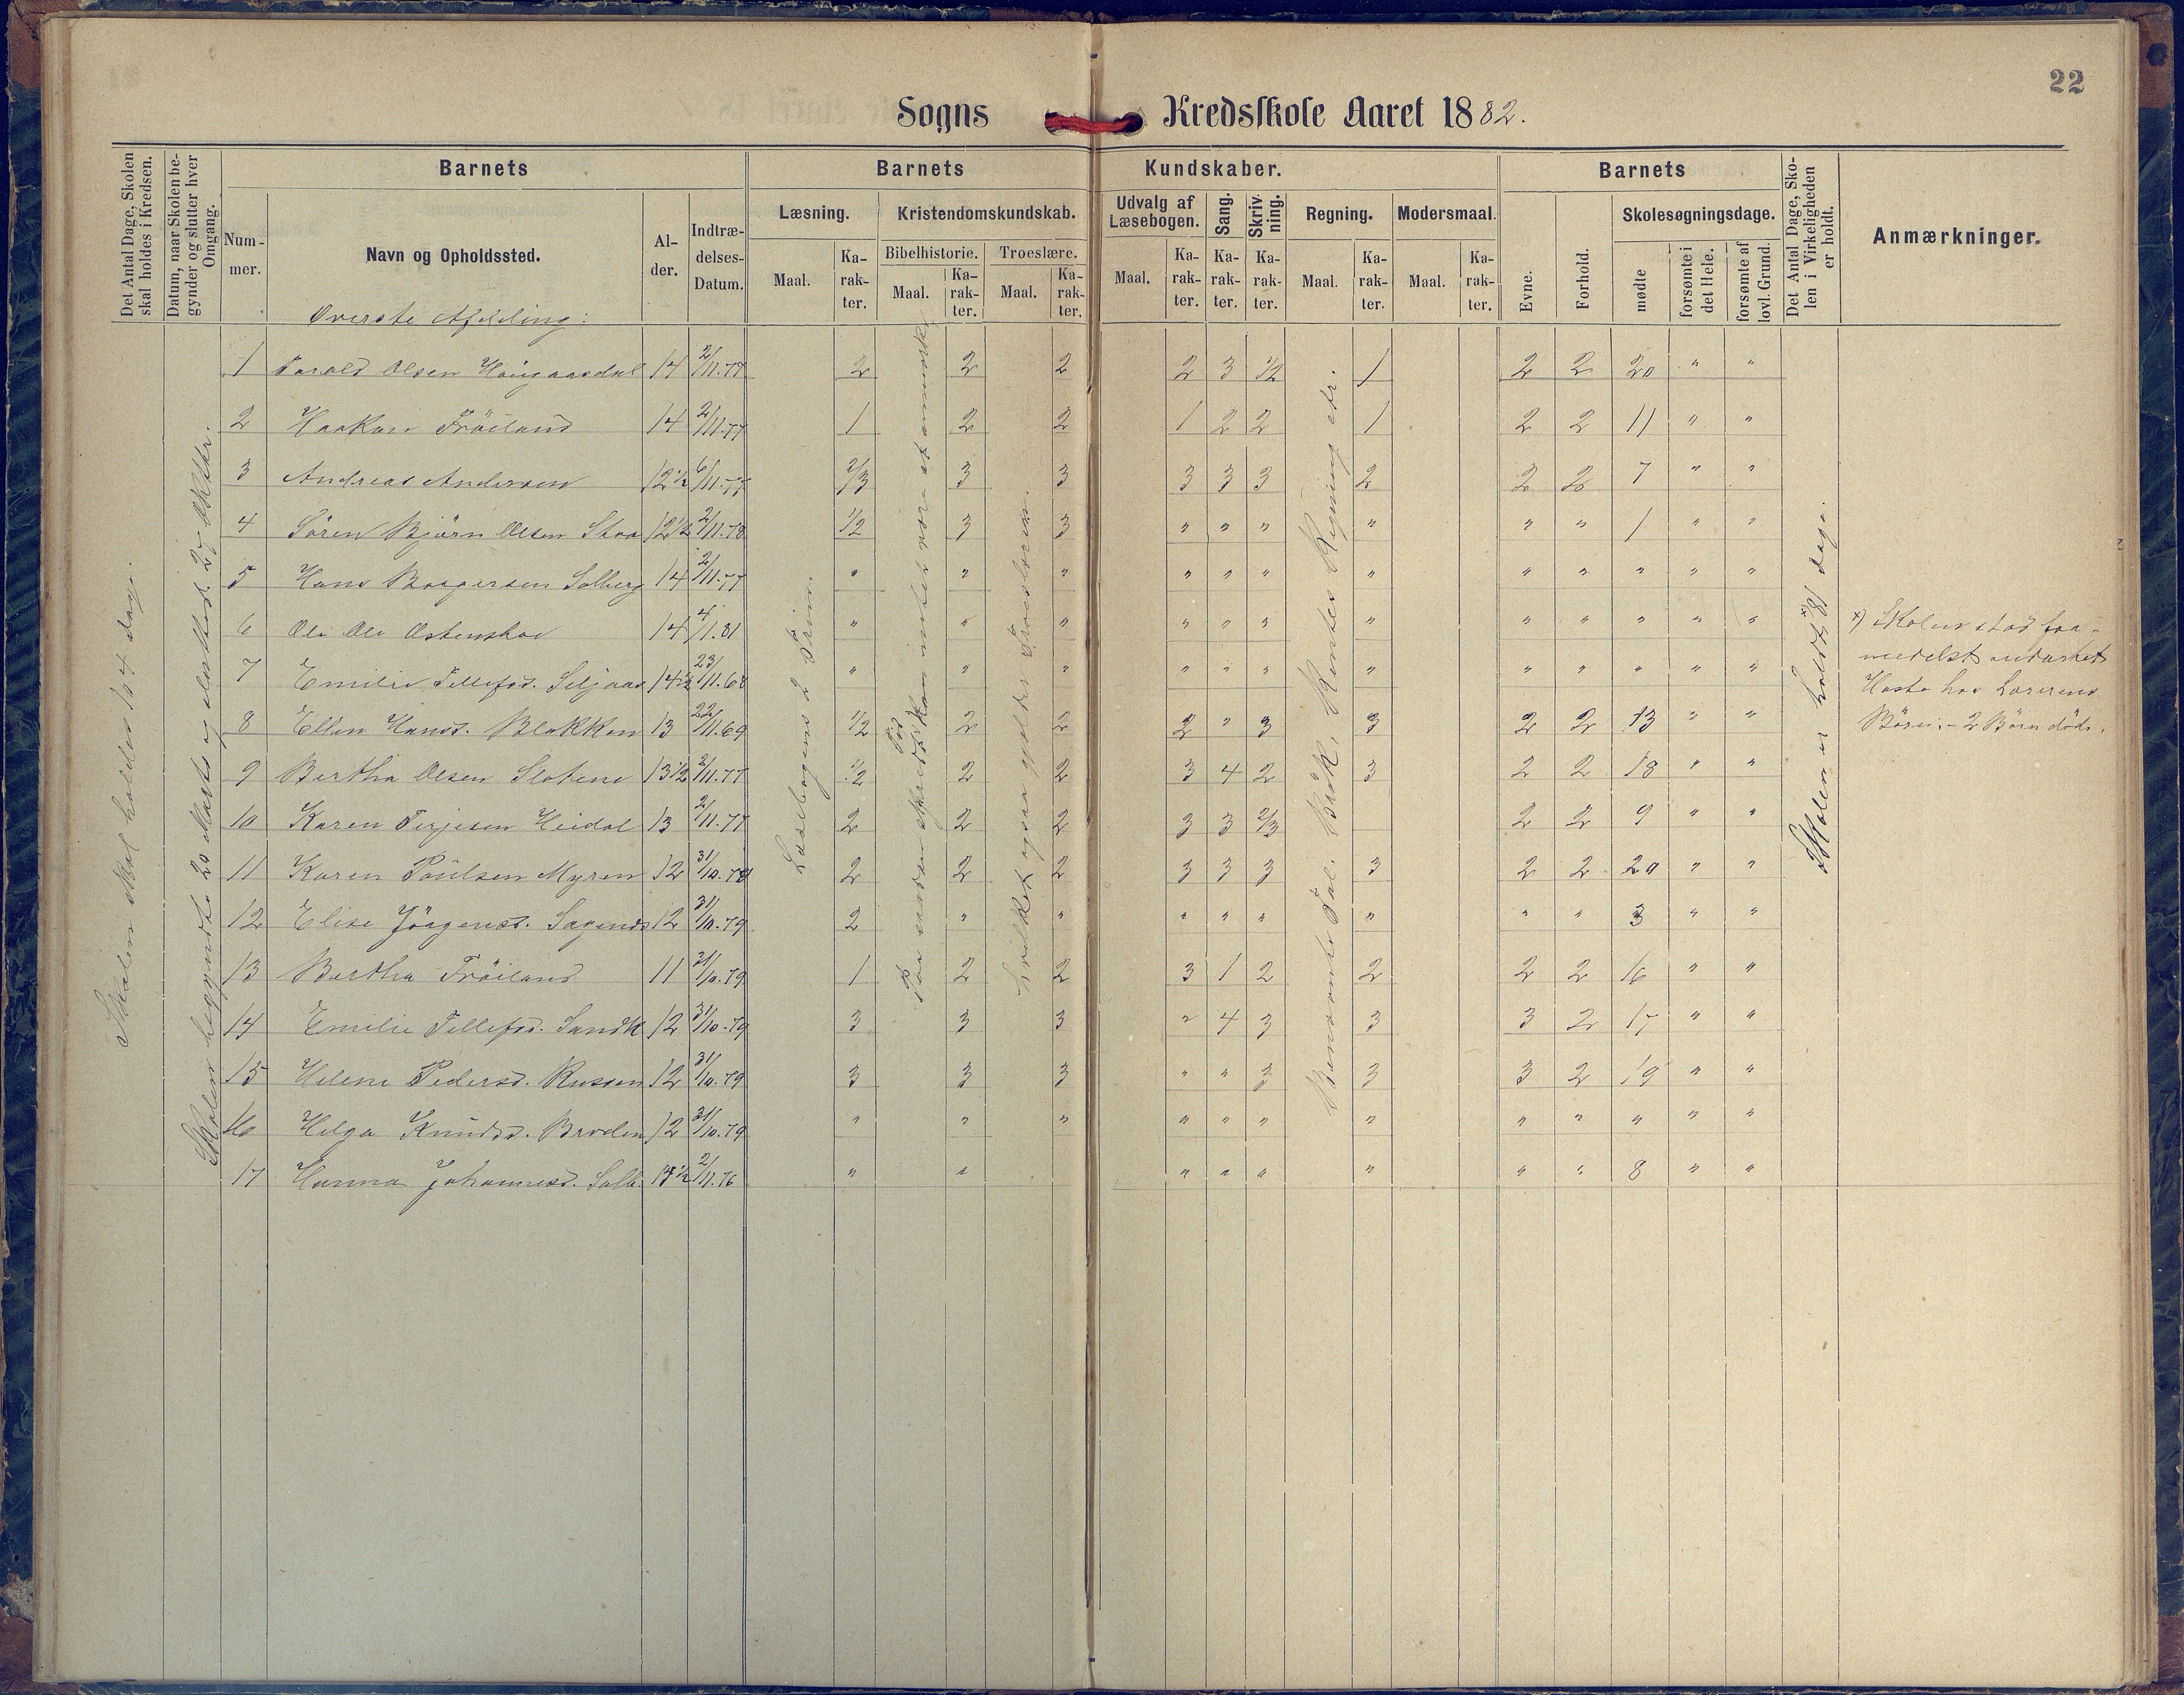 22
Sogns Kredsskole Aaret 1882.
Det Antal Dage, Skolen skal holdes i Kredsen.
Datum, naar Skolen begynder og slutter hver Omgang.
Barnets
Barnets Kundskaber.
Barnets
Det Antal Dage, Skolen i Virkeligheden er holdt.
Anmærkninger.
Nummer.
Navn og Opholdssted.
Alder.
Indtrædelses-Datum.
Læsning.
Kristendomskundskab.
Udvalg af Læsebogen.
Sang.
Skrivning.
Regning.
Modersmaal.
Evne.
Forhold.
Skolesøgningsdage.
Bibelhistorie.
Troeslære.
Maal. Karakter. Maal. Karakter. Maal. Karakter. Maal. Karakter. Karakter. Karakter. Maal. Karakter. Maal. Karakter.
mødte
forsømte i det Hele.
forsømte af lovl. Grund.
Överste Afdeling:
1 Torald Olsen Haugaasdal 14 2/11.77 2 2 2 2 3 1/2 1 2 2 20 " "
2 Haakon Fröiland 14 2/11.77 1 2 2 1 2 2 1 2 2 11 " "
3 Andreas Andersen 12 1/2 6/11.77 2/3 3 3 3 3 3 2 2 2 7 " "
4 Sören Björn Olsen Stoa 12 1/2 2/11.78 1/2 3 3 " " " " " " 1 " "
5 Hans Baagersen Solberg 14 2/11.77 " " " " " " " " " " " "
6 Ole Ols Östenshov 14 4/1.81 " " " " " " " " " " " "
7 Emilie Tellefsd. Seljaas 14 1/2 23/11.68 " " " " " " " " " " " "
8 Ellen Hansd. Blokken 13 22/11.69 1/2 2 2 2 " 3 3 2 2 13 " "
9 Bertha Olsen Slotene 13 1/2 2/11.77 1/2 2 2 3 4 2 3 2 2 18 " "
10 Karen Terjesen Heidal 13 2/11.77 2 2 2 3 3 2/3 2 2 9 " "
11 Karen Poulsen Myren 12 31/10.79 2 2 2 3 3 3 3 2 2 20 " "
12 Elise Jörgensd. Sagends 12 31/10.79 2 " " " " " " " " 3 " "
13 Bertha Fröiland 11 31/10.79 1 2 2 3 1 2 2 2 2 16 " "
14 Emilie Tellefsd. Sandk 12 31/10.79 3 3 3 " 4 3 3 3 2 17 " "
15 Helene Pedersd. Russen 12 31/10.79 3 3 3 " " 3 3 3 2 19 " "
16 Helga Knudsd. Broden 12 31/10.79 " " " " " " " " " " " "
17 Hanna Johannesd. Solb. 14 1/2 2/11.76 " " " " " " " " 8 " "
Skolen skal holdes 104 dage.
Skolen begyndte 20 Marts og sluttede 27 Oktbr.
Læsebogens 2 Trin.
hvilket ogsaa gjelder Troeslæren.
Benævnte Tal. Brök, Rentes Regning etc.
Skolen er holdt x) 81 dage.
x) Skolen stod
Hoste hos Lærerens
Börn. – 2 Börn döde.